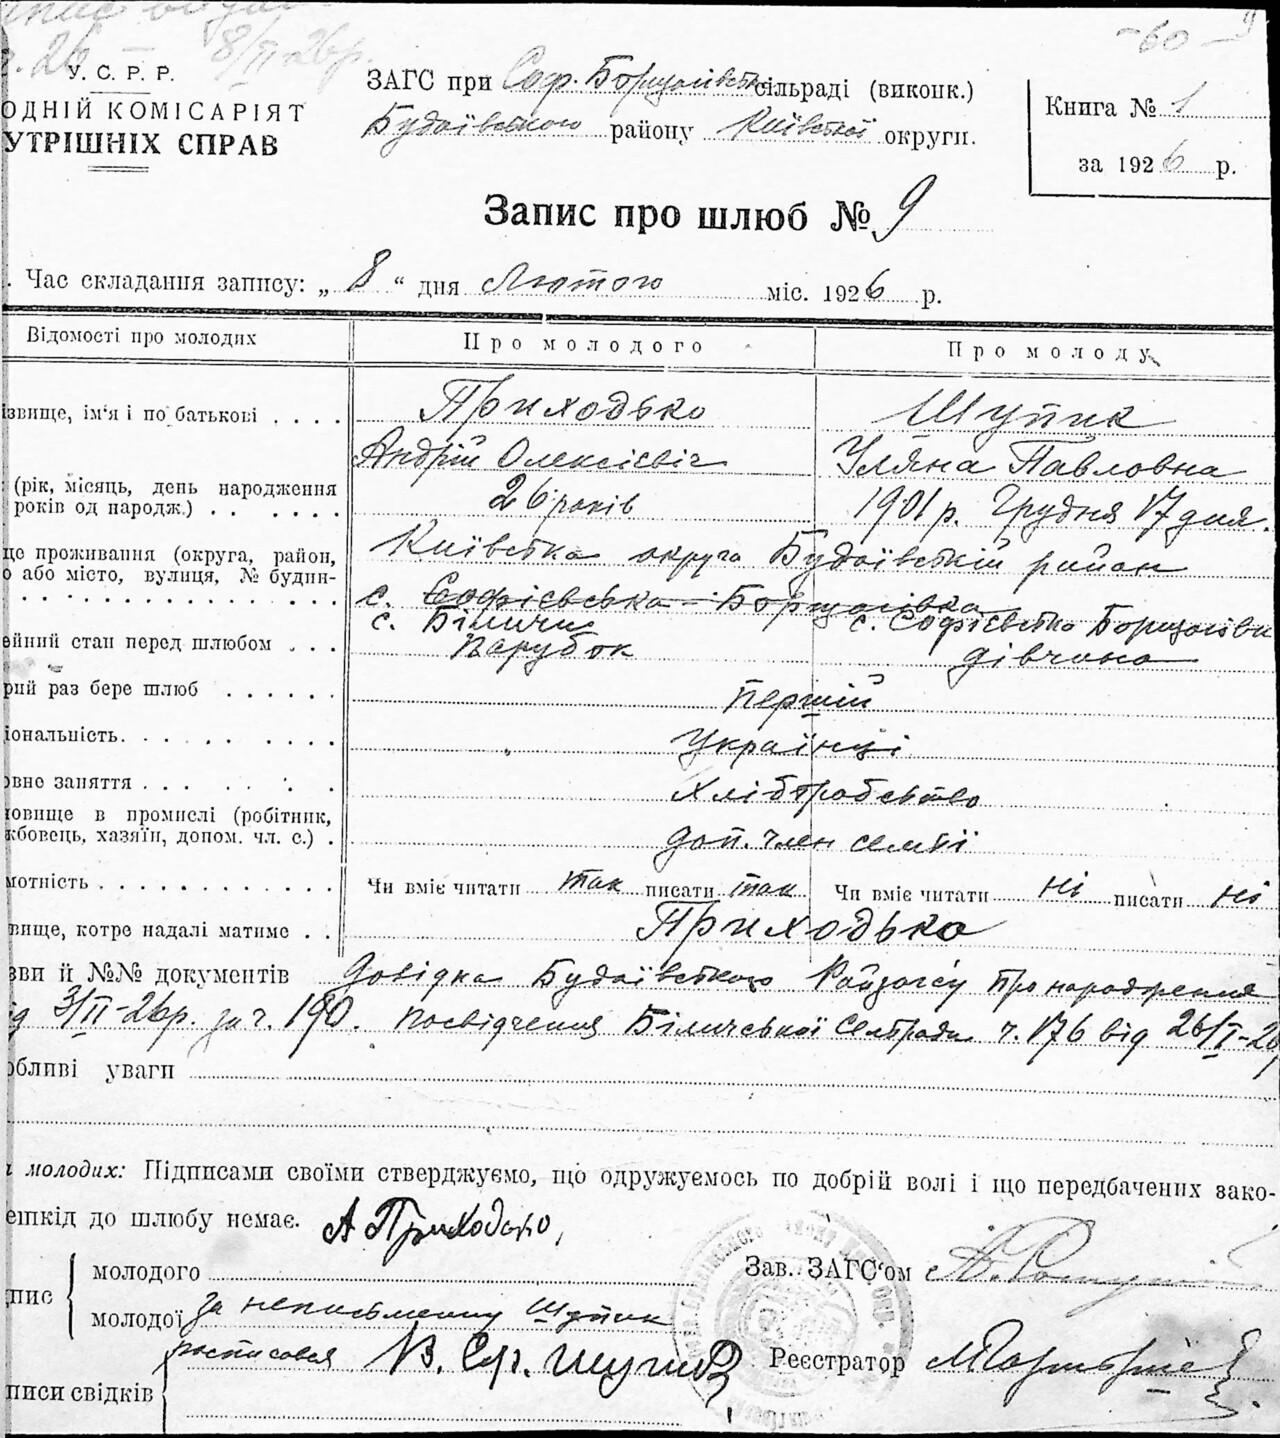 -60-
9
г. 26
8/II-26р.
У. С. Р. Р.
ОДНІЙ КОМІСАРІЯТ
УТРІШНІХ СПРАВ
ЗАГС при Соф. Борщагівськ сільраді (виконк.)
Будаївського району Київської округи.
Книга № 1
за 1926 р.
Запис про шлюб № 9
Час складання запису: „ 8 “ дня Лютого міс. 1926 р.
Відомості про молодих Про молодого Про молоду
ізвище, ім'я і по батькові . . . . Приходько Щупик
Андрій Олексієвіч Уляна Павловна
(рік, місяць, день народження
років од народж.) . . . . . . 26 років 1901 р. Грудня 17 дня.
це проживання (округа, район, Київська округа Будаївській район
о або місто, вулиця, № будин-
с. Софієвська-Борщагівка
с. Біличи с. Софієвсько Борщагівка
ейний стан перед шлюбом . . . Парубок дівчина
рий раз бере шлюб . . . . . . Першій
іональність. . . . . . . . . Українці
овне заняття . . . . . . . Хліборобство
овище в промислі (робітник,
жбовець, хазяїн, допом. чл. с.) . доп. член семьї
мотність . . . . . . . . . . . . Чи вміє читати так писати так Чи вміє читати ні писати ні
вище, котре надалі матиме . . Приходько
зви й №№ документів Довідка Будаївського Райзагсу про народження
ід 3/II-26р. за ч. 190. Посвідчення Біличської Сельради ч. 176 від 26/I-26
обливі уваги
и молодих: Підписами своїми стверджуємо, що одружуємось по добрій волі і що передбачених зако-
ешкід до шлюбу немає. А Приходько,
молодого
дпис
молодої за неписьменну Щупик
росписався В. Щупик
писи свідків
Зав. ЗАГС'ом
Реєстратор